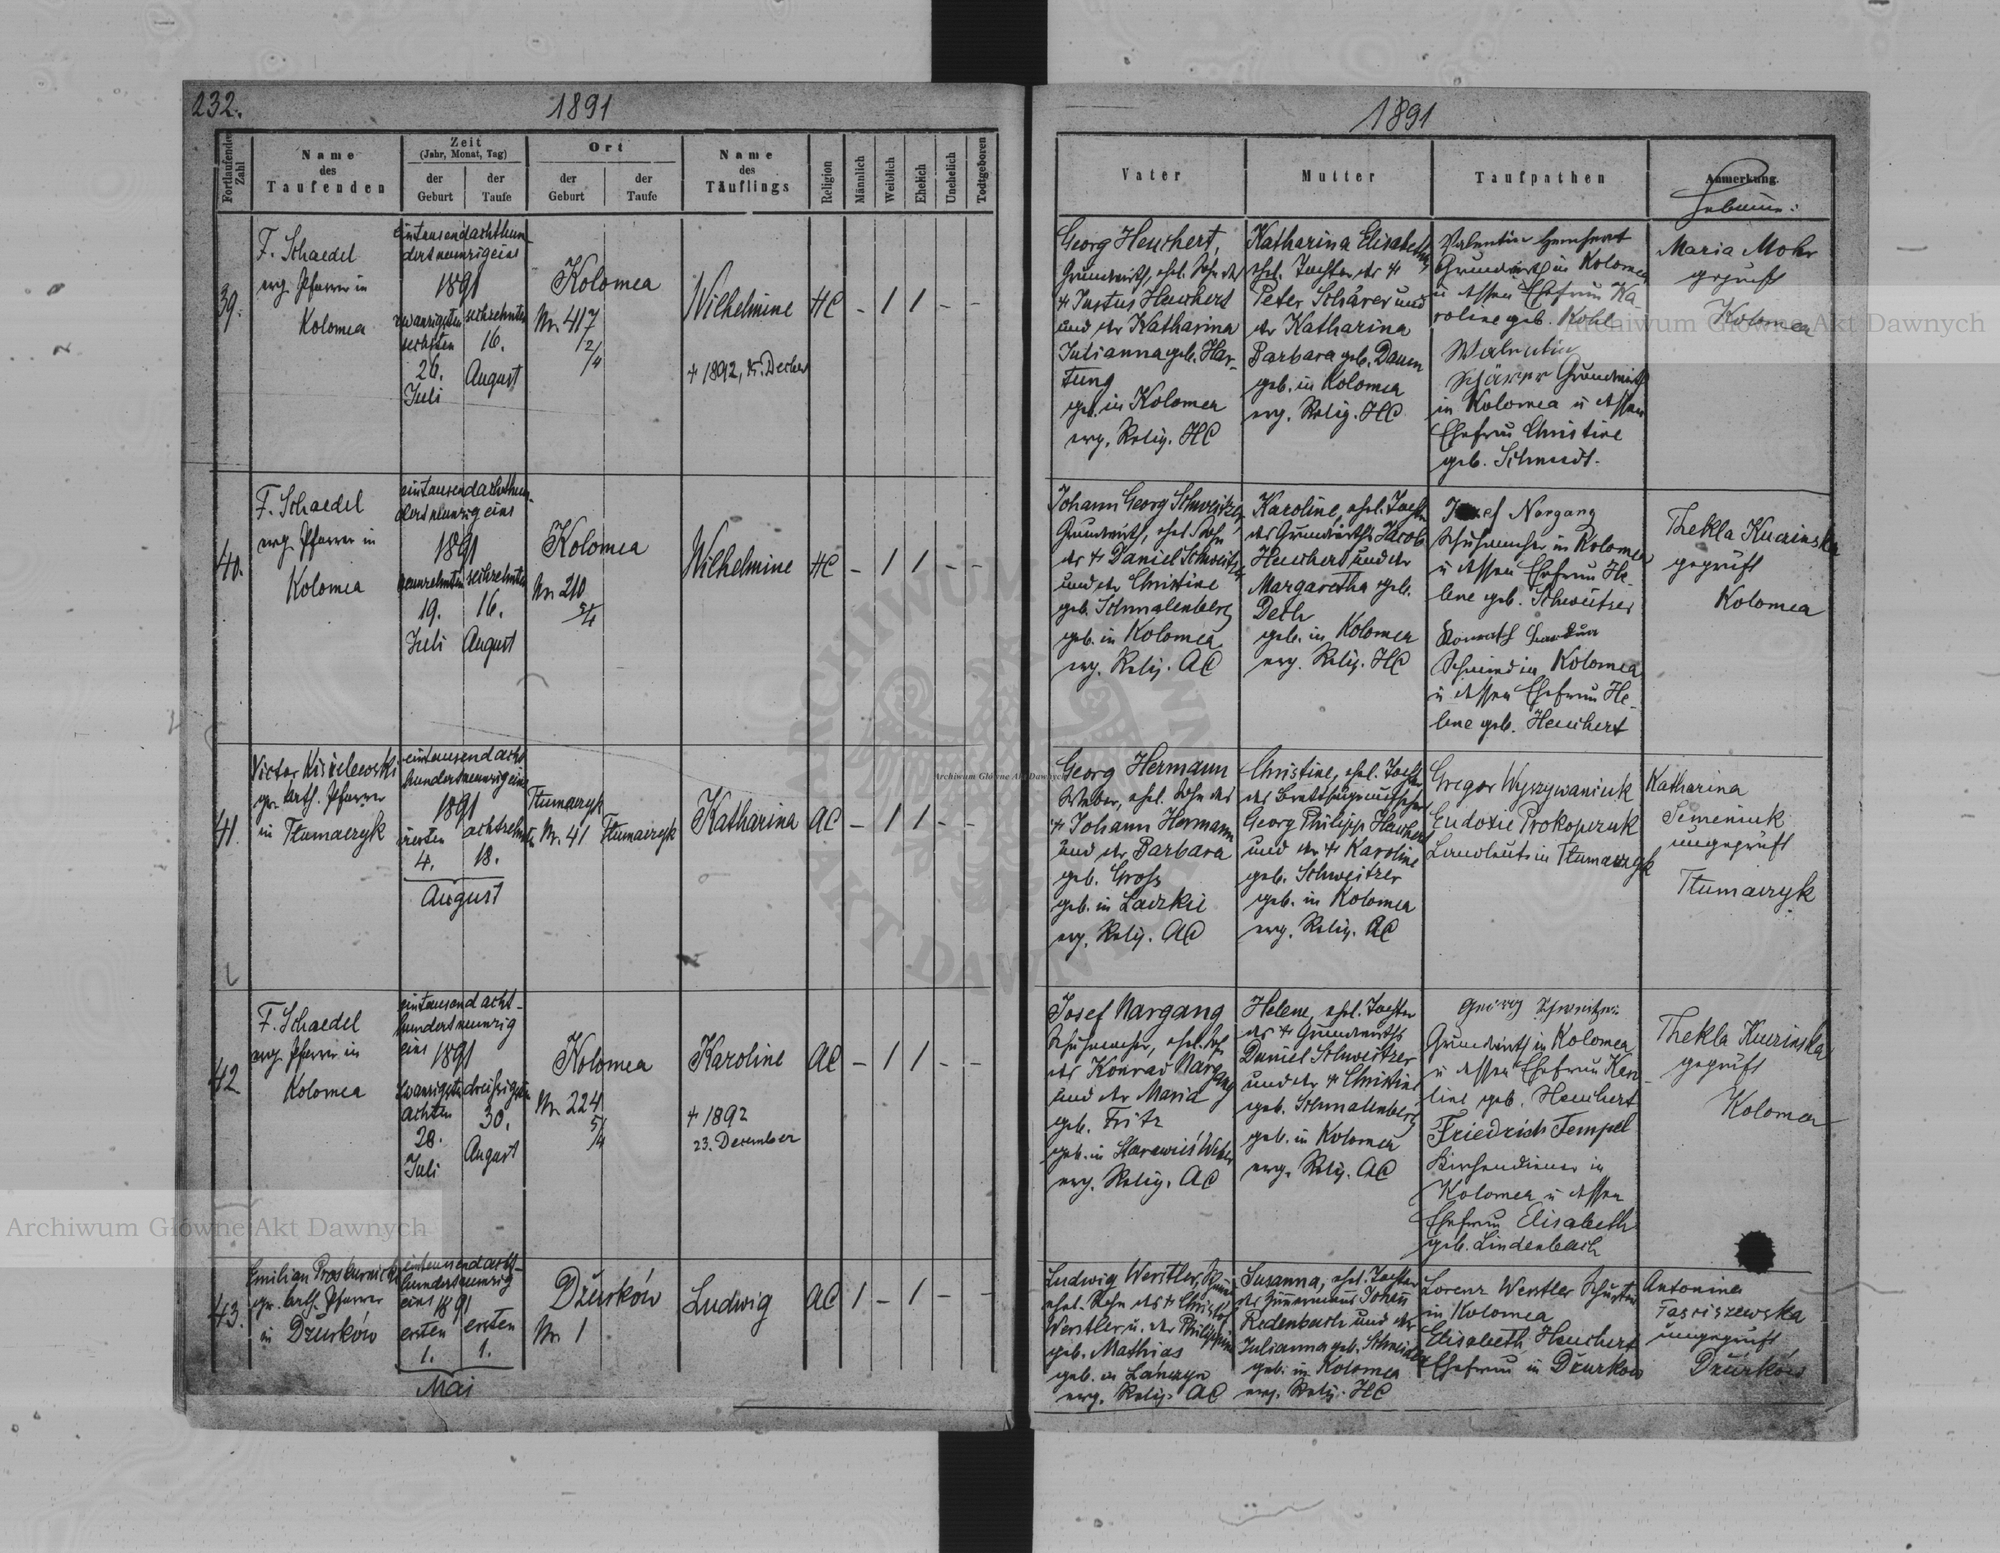 232.
1891
Fortlaufende Zahl
Name
des
Taufenden
Zeit
(Jahr, Monat, Tag)
der
Geburt
der
Taufe
Ort
der
Geburt
der
Taufe
Name
des
Täuflings
Religion
Männlich
Weiblich
Ehelich
Unehelich
Todtgeboren
39.
F. Schaedel
evg. Pfarrer in
Kolomea
eintausendachthun-
dertneunzigeins
1891
zwanzigsten
sechsten
26.
Juli
sechzehnten
16.
August
Kolomea
Nr. 417
2/4
Wilhelmine
† 1892, 15. Decber
HC
- 1 1 - -
40.
F. Schaedel
evg. Pfarrer in
Kolomea
eintausendachthun-
dertneunzigeins
1891
neunzehnten
19.
Juli
sechzehnten
16.
August
Kolomea
Nr. 210
5/4
Wilhelmine
HC
- 1 1 - -
41.
Victor Kisielewski
gr. kath. Pfarrer
in Tłumaczyk
eintausendacht
hundertneunzigeins
1891
vierten
4.
achtzehnten
18.
August
Tłumaczyk
Nr. 41
Tłumaczyk
Katharina
AC
- 1 1 - -
42
F. Schaedel
evg. Pfarrer in
Kolomea
eintausendacht-
hundertneunzig
eins 1891
zwanzigsten
achten
28.
Juli
dreissigsten
30.
August
Kolomea
Nr. 224
5/4
Karoline
† 1892
23. December
AC
- 1 1 - -
43.
Emilian Proskurnicki
gr. kath. Pfarrer
in Dżurków
eintausendacht-
hundertneunzig
eins 1891
ersten
1.
ersten
1.
Mai
Dżurków
Nr. 1
Ludwig
AC
1 - 1 - -
1891
Vater
Mutter
Taufpathen
Anmerkung.
Hebamme:
Georg Heuchert,
Grundwirth, ehel. Sohn des
† Justus Heuchert
und der Katharina
Julianna geb. Har-
tung
geb. in Kolomea
evg. Relig. HC
Katharina Elisabeth,
ehel. Tochter des †
Peter Schärer und
der Katharina
Barbara geb. Daum
geb. in Kolomea
evg. Relig. HC
Valentin
Grundwirth in Kolomea
u dessen Ehefrau Ka-
roline geb. Kohl
Valentin
Schärer Grundwirth
in Kolomea u dessen
Ehefrau Christine
geb. Schmidt.
Maria Mohr
geprüft
Kolomea
Johann Georg Schweitzer
Grundwirth, ehel. Sohn
des † Daniel Schweitzer
und der Christine
geb. Schmalenberg
geb. in Kolomea
evg. Relig. AC
Karoline, ehel. Tochter
des Grundwirths Jacob
Heuchert und der
Margaretha geb.
Deth
geb. in Kolomea
evg. Relig. HC
Josef Nargang
Schuhmacher in Kolomea
u dessen Ehefrau He-
lene geb. Schweitzer
Konrath
Schmied in Kolomea
u dessen Ehefrau He-
lene geb. Heuchert
Thekla Kucinska
geprüft
Kolomea
Georg Hermann
Weber, ehel. Sohn des
† Johann Hermann
und der Barbara
geb. Gross
geb. in Laczkie
evg. Relig. AC
Christine, ehel. Tochter
des
Georg Philipp Heuchert
und der † Karoline
geb. Schweitzer
geb. in Kolomea
evg. Relig. AC
Gregor Wyszywaniuk
Eudoxie Prokopczuk
Landleute in Tłumaczyk
Katharina
Semeniuk
ungeprüft
Tłumaczyk
Josef Nargang
Schuhmacher, ehel. Sohn
des Konrad Nargang
und der Maria
geb. Fritz
geb. in
evg. Relig. AC
Helene, ehel. Tochter
des † Grundwirths
Daniel Schweitzer
und der † Christine
geb. Schmalenberg
geb. in Kolomea
evg. Relig. AC
Georg Schweitzer
Grundwirth in Kolomea
u dessen Ehefrau Karo-
line geb. Heuchert
Friedrich Tempel
Kirchendiener in
Kolomea u dessen
Ehefrau Elisabeth
geb. Lindenbach
Thekla Kucinska
geprüft
Kolomea
Ludwig Werstler,
ehel. Sohn des † Christof
Werstler u. der Philippine
geb. Mathias
geb. in
evg. Relig. AC
Susanna, ehel. Tochter
des Zimmermanns Johann
Redenbach und der
Julianna geb. Schneider
geb. in Kolomea
evg. Relig. HC
Lorenz Werstler Schuster
in Kolomea
Elisabeth Heuchert
Ehefrau in Dżurków
Antonina
ungeprüft
Dżurków
Archiwum Główne Akt Dawnych
Archiwum Główne Akt Dawnych
Archiwum Główne Akt Dawnych
ARCHIWUM GŁÓWNE AKT DAWNYCH